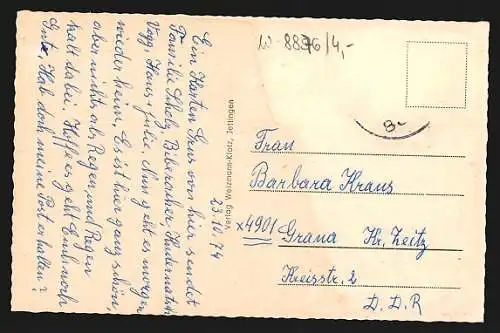 Ein Karten Grus von hier sendet
Familie Scholz, Biberacher,
Vogg, Haus + Julie. Nun geht es morgen
wieder heim. Es ist hier ganz schön,
aber nichts als Regen und Regen
halt dabei. Hoffe es geht Euch noch
Gut. Hab doch meine Post erhalten?
23.10.74
W-8896/4,-
Frau
Barbara Kraus
x4901 Grana Kr. Zeitz
Kreisstr. 2
D. D. R